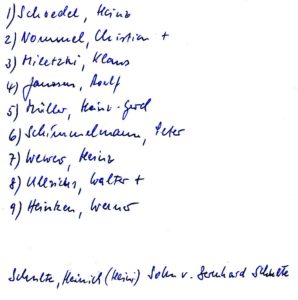 1) Schoedel, Heinz
2) Nommel, Christian +
3) Miletzki, Klaus
4) Janssen, Rolf
5) Müller, Heinz-Gerd
6) Schimmelmann, Peter
7) Wewer, Heinz
8) Ullrichs, Walter +
9) Heinken, Werner
Schulte, Heinrich (Heini) Sohn v. Bernhard Schulte